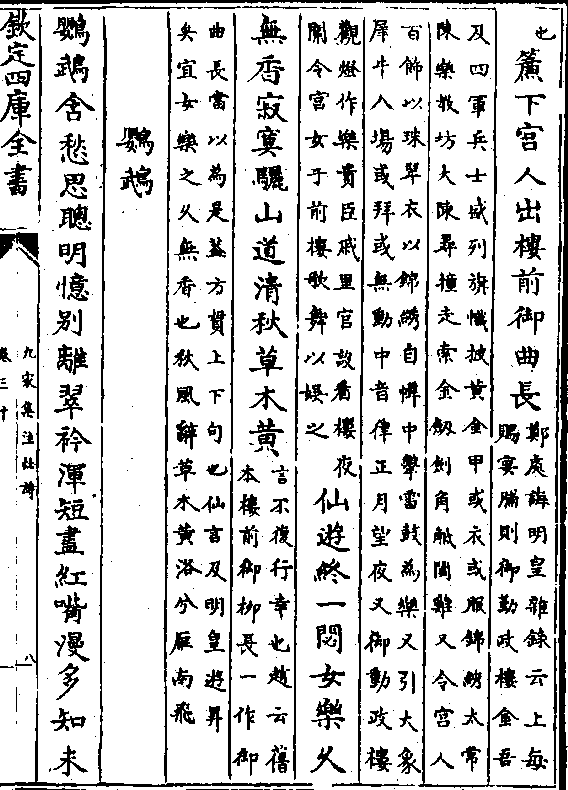 也
簾下宫人出樓前御曲長鄭處誨明皇雜録云上每
賜宴酺則御勤政樓金吾
及四軍兵士盛列旗幟披黄金甲或衣或服錦綉太常
陳樂教坊大陳尋橦走索金劔劍角觝鬪雞又令宫人
百飾以珠翠衣以錦綉自幃中擊雷鼓為樂又引大象
犀牛入場或拜或無動中音律正月望夜又御勤政樓
觀燈作樂貴臣戚里官故看樓夜
闌令宫女于前樓歌舞以娱之
仙遊終一閟女樂久
無香寂寞驪山道清秋草木黄言不復行幸也趙云舊
本樓前御柳長一作御
曲長當以為是葢方貫上下句也仙言及明皇遊昇
矣宜女樂之久無香也秋風辭草木黄落兮雁南飛
鸚鵡
鸚鵡含愁思聰明憶别離翠衿渾短盡紅嘴漫多知未
欽定四庫全書
九家集注杜詩
卷三十
八